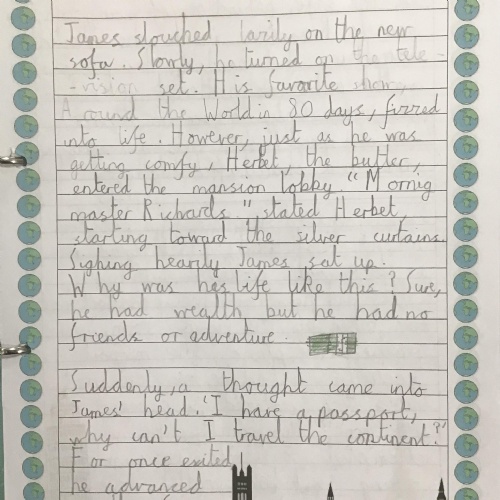 James slouched lazily on the new
sofa. Slowly, he turned on the tele-
-vision set. His favorite show,
Around the World in 80 days, fizzed
into life. However, just as he was
getting comfy, Herbet, the butler,
entered the mansion lobby. "Mornig
master Richards" stated Herbet,
starting toward the silver curtains.
Sighing hearily James sat up.
Why was his life like this? Sure,
he had wealth but he had no
friends or adventure.
Suddenly, a thought came into
James' head. 'I have a passport,
why can't I travel the continent?'
For once exited,
he advanced